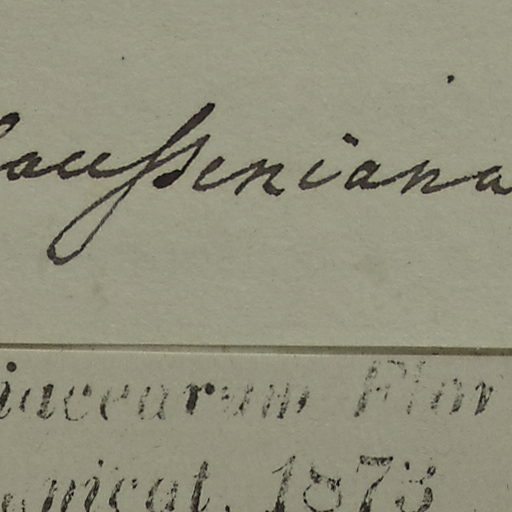 lausseniana
iacearum Flor
nicat. 1873